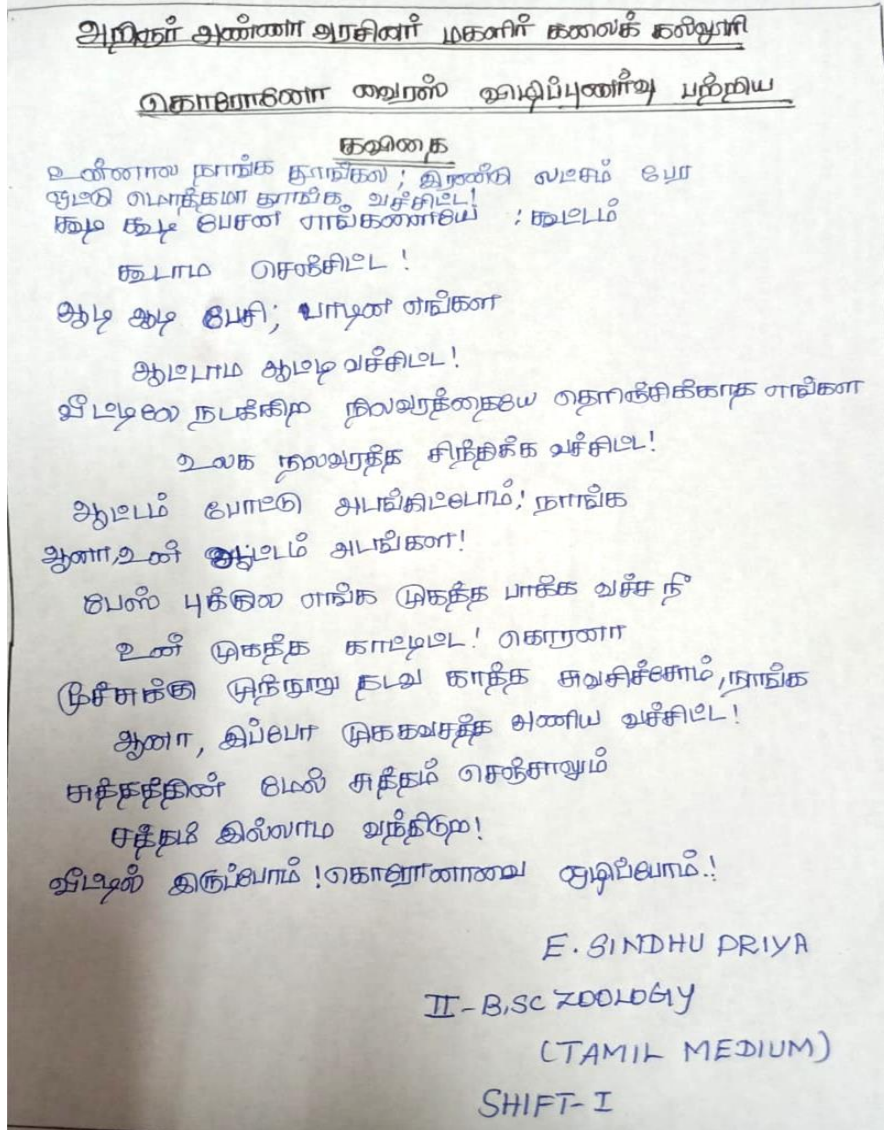 அறிஞர் அண்ணா அரசினர் மகளிர் கலைக் கல்லூரி
கொரோனோ வைரஸ் விழிப்புணர்வு பற்றிய
கவிதை
உன்னால நாங்க தூங்கல; இரண்டு லட்சம் பேர
ஒட்டு மொத்தமா தூங்க வச்சிட்ட!
கூடி கூடி பேசன எங்களையே ; கூட்டம்
கூடாம செஞ்சிட்ட !
ஆடி ஆடி பேசி; பாடின எங்கள
ஆட்டாம ஆட்டி வச்சிட்ட!
வீட்டிலே நடக்கிற நிலவரத்தையே தெரிஞ்சிக்காத எங்கள
உலக நிலவரத்த சிந்திக்க வச்சிட்ட!
ஆட்டம் போட்டு அடங்கிட்டோம்! நாங்க
ஆனா, உன் ஆட்டம் அடங்கள!
பேஸ் புக்குல எங்க முகத்த பாக்க வச்ச நீ
உன் முகத்த காட்டிட்ட! கொரனா
மூச்சுக்கு முந்நூறு தடவ காத்த சுவசிச்சோம், நாங்க
ஆனா, இப்போ முககவசத்த அணிய வச்சிட்ட!
சுத்தத்தின் மேல் சுத்தம் செஞ்சாலும்
சத்தம் இல்லாம வந்திடுற!
வீட்டில் இருப்போம் ! கொரோனாவை ஒழிப்போம்.!
E. SINDHU PRIYA
II - B.SC ZOOLOGY
(TAMIL MEDIUM)
SHIFT - I